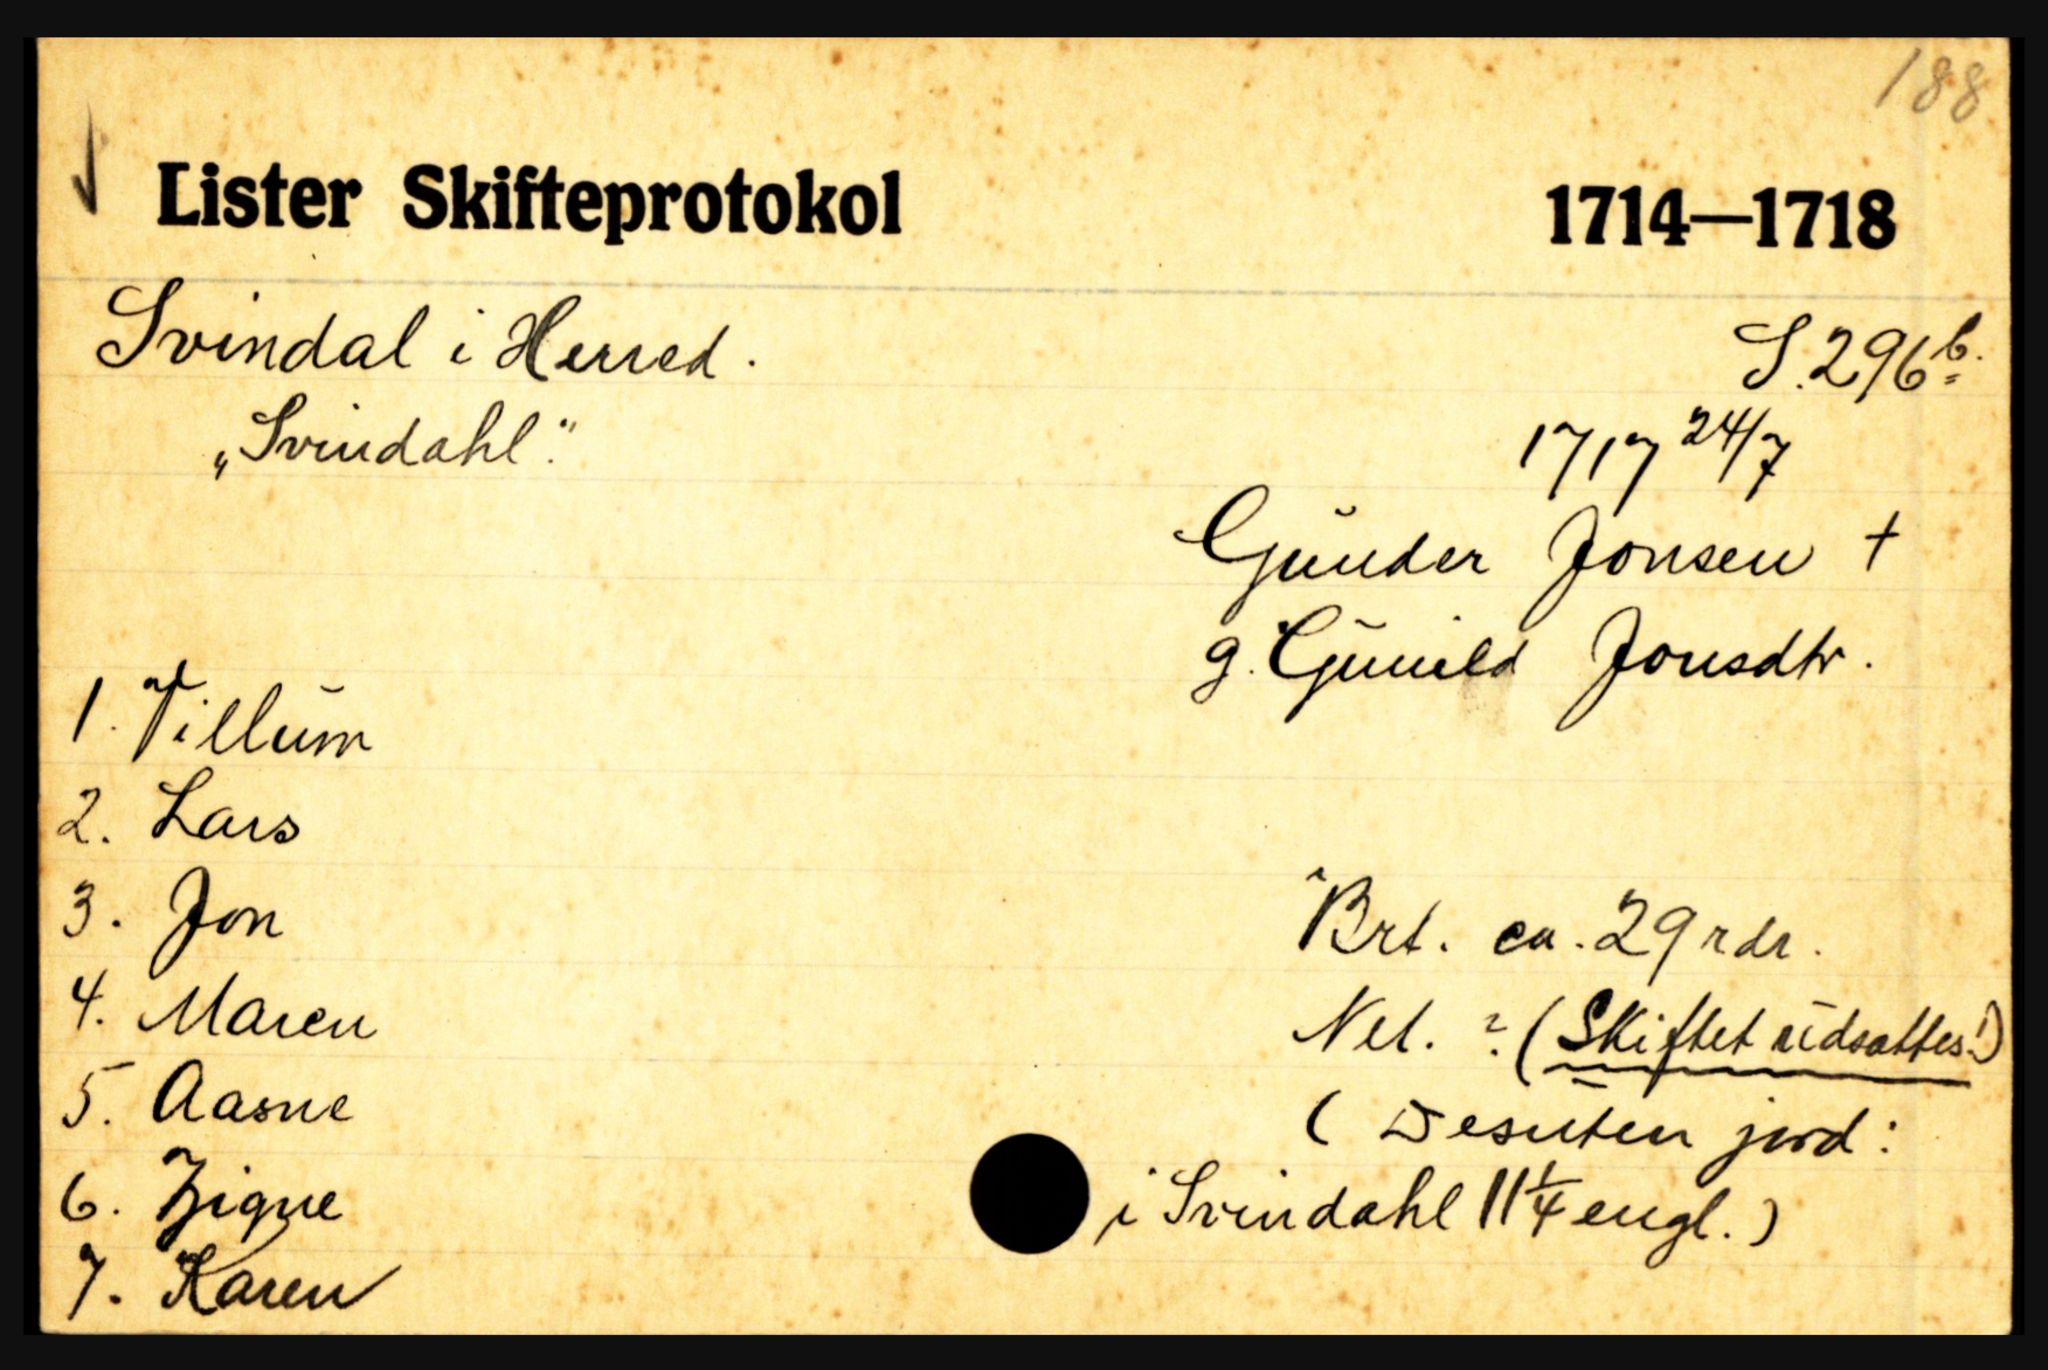 188
Lister Skifteprotokol 1714—1718
Svindal i Herred. S. 296b.
„Svindahl."
1717 24/7
Gŭnder Jonsen †
g. Gŭnild Jonsdtr.
1. Villŭm
2. Lars
3. Jon
Brt. ca. 29 rdr.
4. Maren
Net. ? (Skiftet ŭdsattes!)
5. Aasne
(Desŭten jord:
6. Zigne
i Svindahl 11 1/4 engl.)
7. Karen